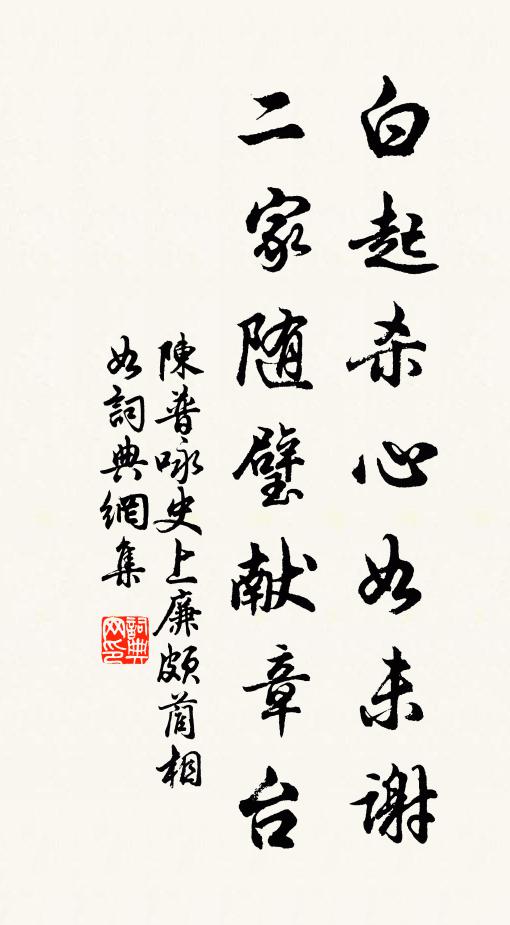 白起杀心如未谢
二家随璧献章台
陳普咏史上廉頗蔺相
如詞典網集
詞典网印